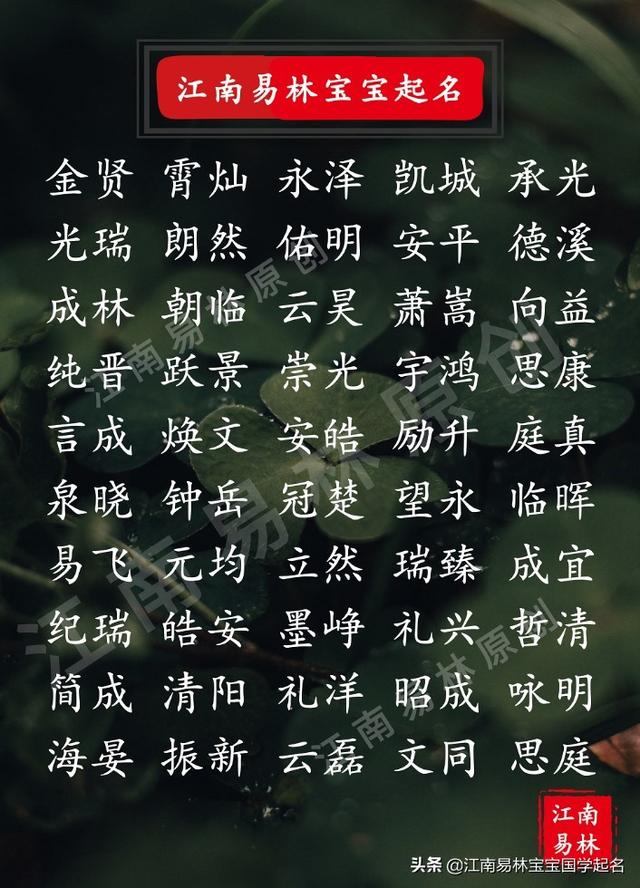 江南易林宝宝起名
金贤 霄灿 永泽 凯城 承光
光瑞 朗然 佑明 安平 德溪
成林 朝临 云昊 萧嵩 向益
纯晋 跃景 崇光 宇鸿 思康
言成 焕文 安皓 励升 庭真
泉晓 钟岳 冠楚 望永 临晖
易飞 元均 立然 瑞臻 成宜
纪瑞 皓安 墨峥 礼兴 哲清
简成 清阳 礼洋 昭成 咏明
海晏 振新 云磊 文同 思庭
江南易林原创
江南易林原创
江南易林原创
江南
易林
头条 @江南易林宝宝国学起名